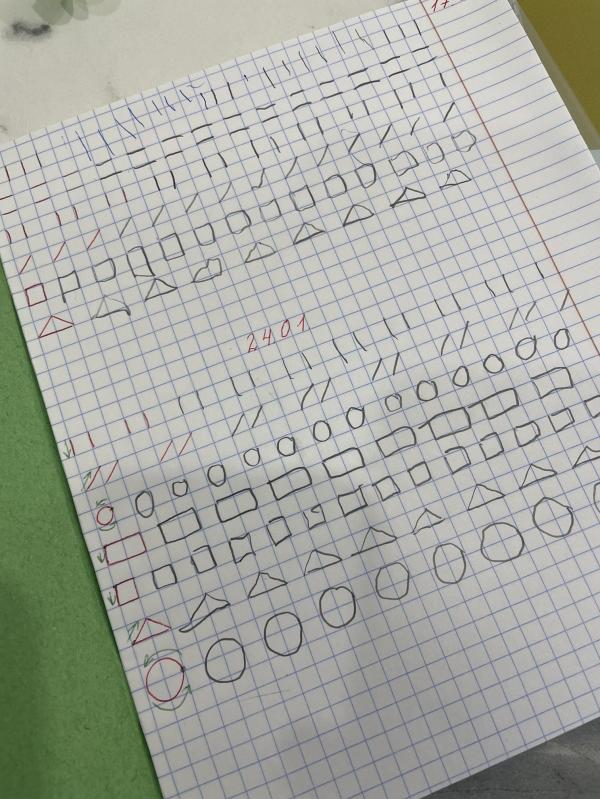 17
2401